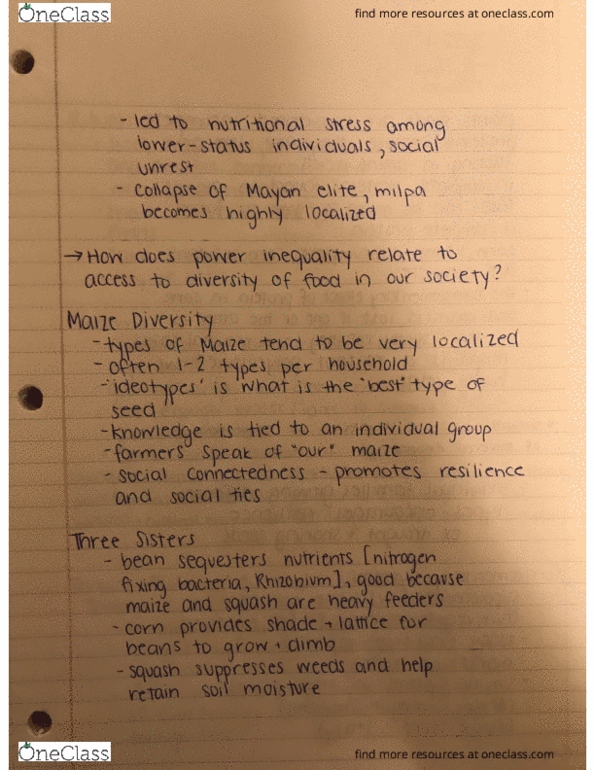 OneClass
find more resources at oneclass.com
- led to nutritional stress among
lower-status individuals, social
unrest
- collapse of Mayan elite, milpa
becomes highly localized
→ How does power inequality relate to
access to diversity of food in our society?
Maize Diversity
- types of Maize tend to be very localized
- often 1-2 types per household
- 'ideotypes' is what is the "best" type of
seed
- knowledge is tied to an individual group
- farmers speak of "our" maize
- social connectedness - promotes resilience
and social ties
Three Sisters
- bean sequesters nutrients [nitrogen
fixing bacteria, Rhizobium], good because
maize and squash are heavy feeders
- corn provides shade + lattice for
beans to grow + climb
- squash suppresses weeds and help
retain soil moisture
OneClass
find more resources at oneclass.com